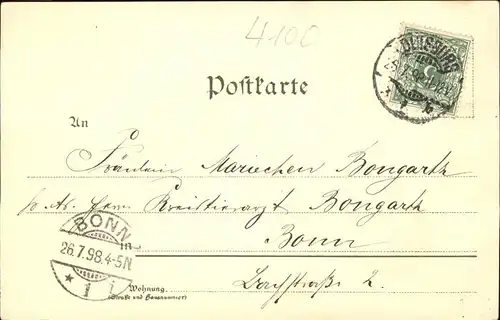 4100
DUISBURG
Postkarte
An
Fräulein Mariechen Bongartz
Kreistierarzt Bongartz
BONN
26.7.98.4-5N
* 1 i
in
Bonn
Wohnung.
(Straße und Hausnummer)
Bachstraße 2.